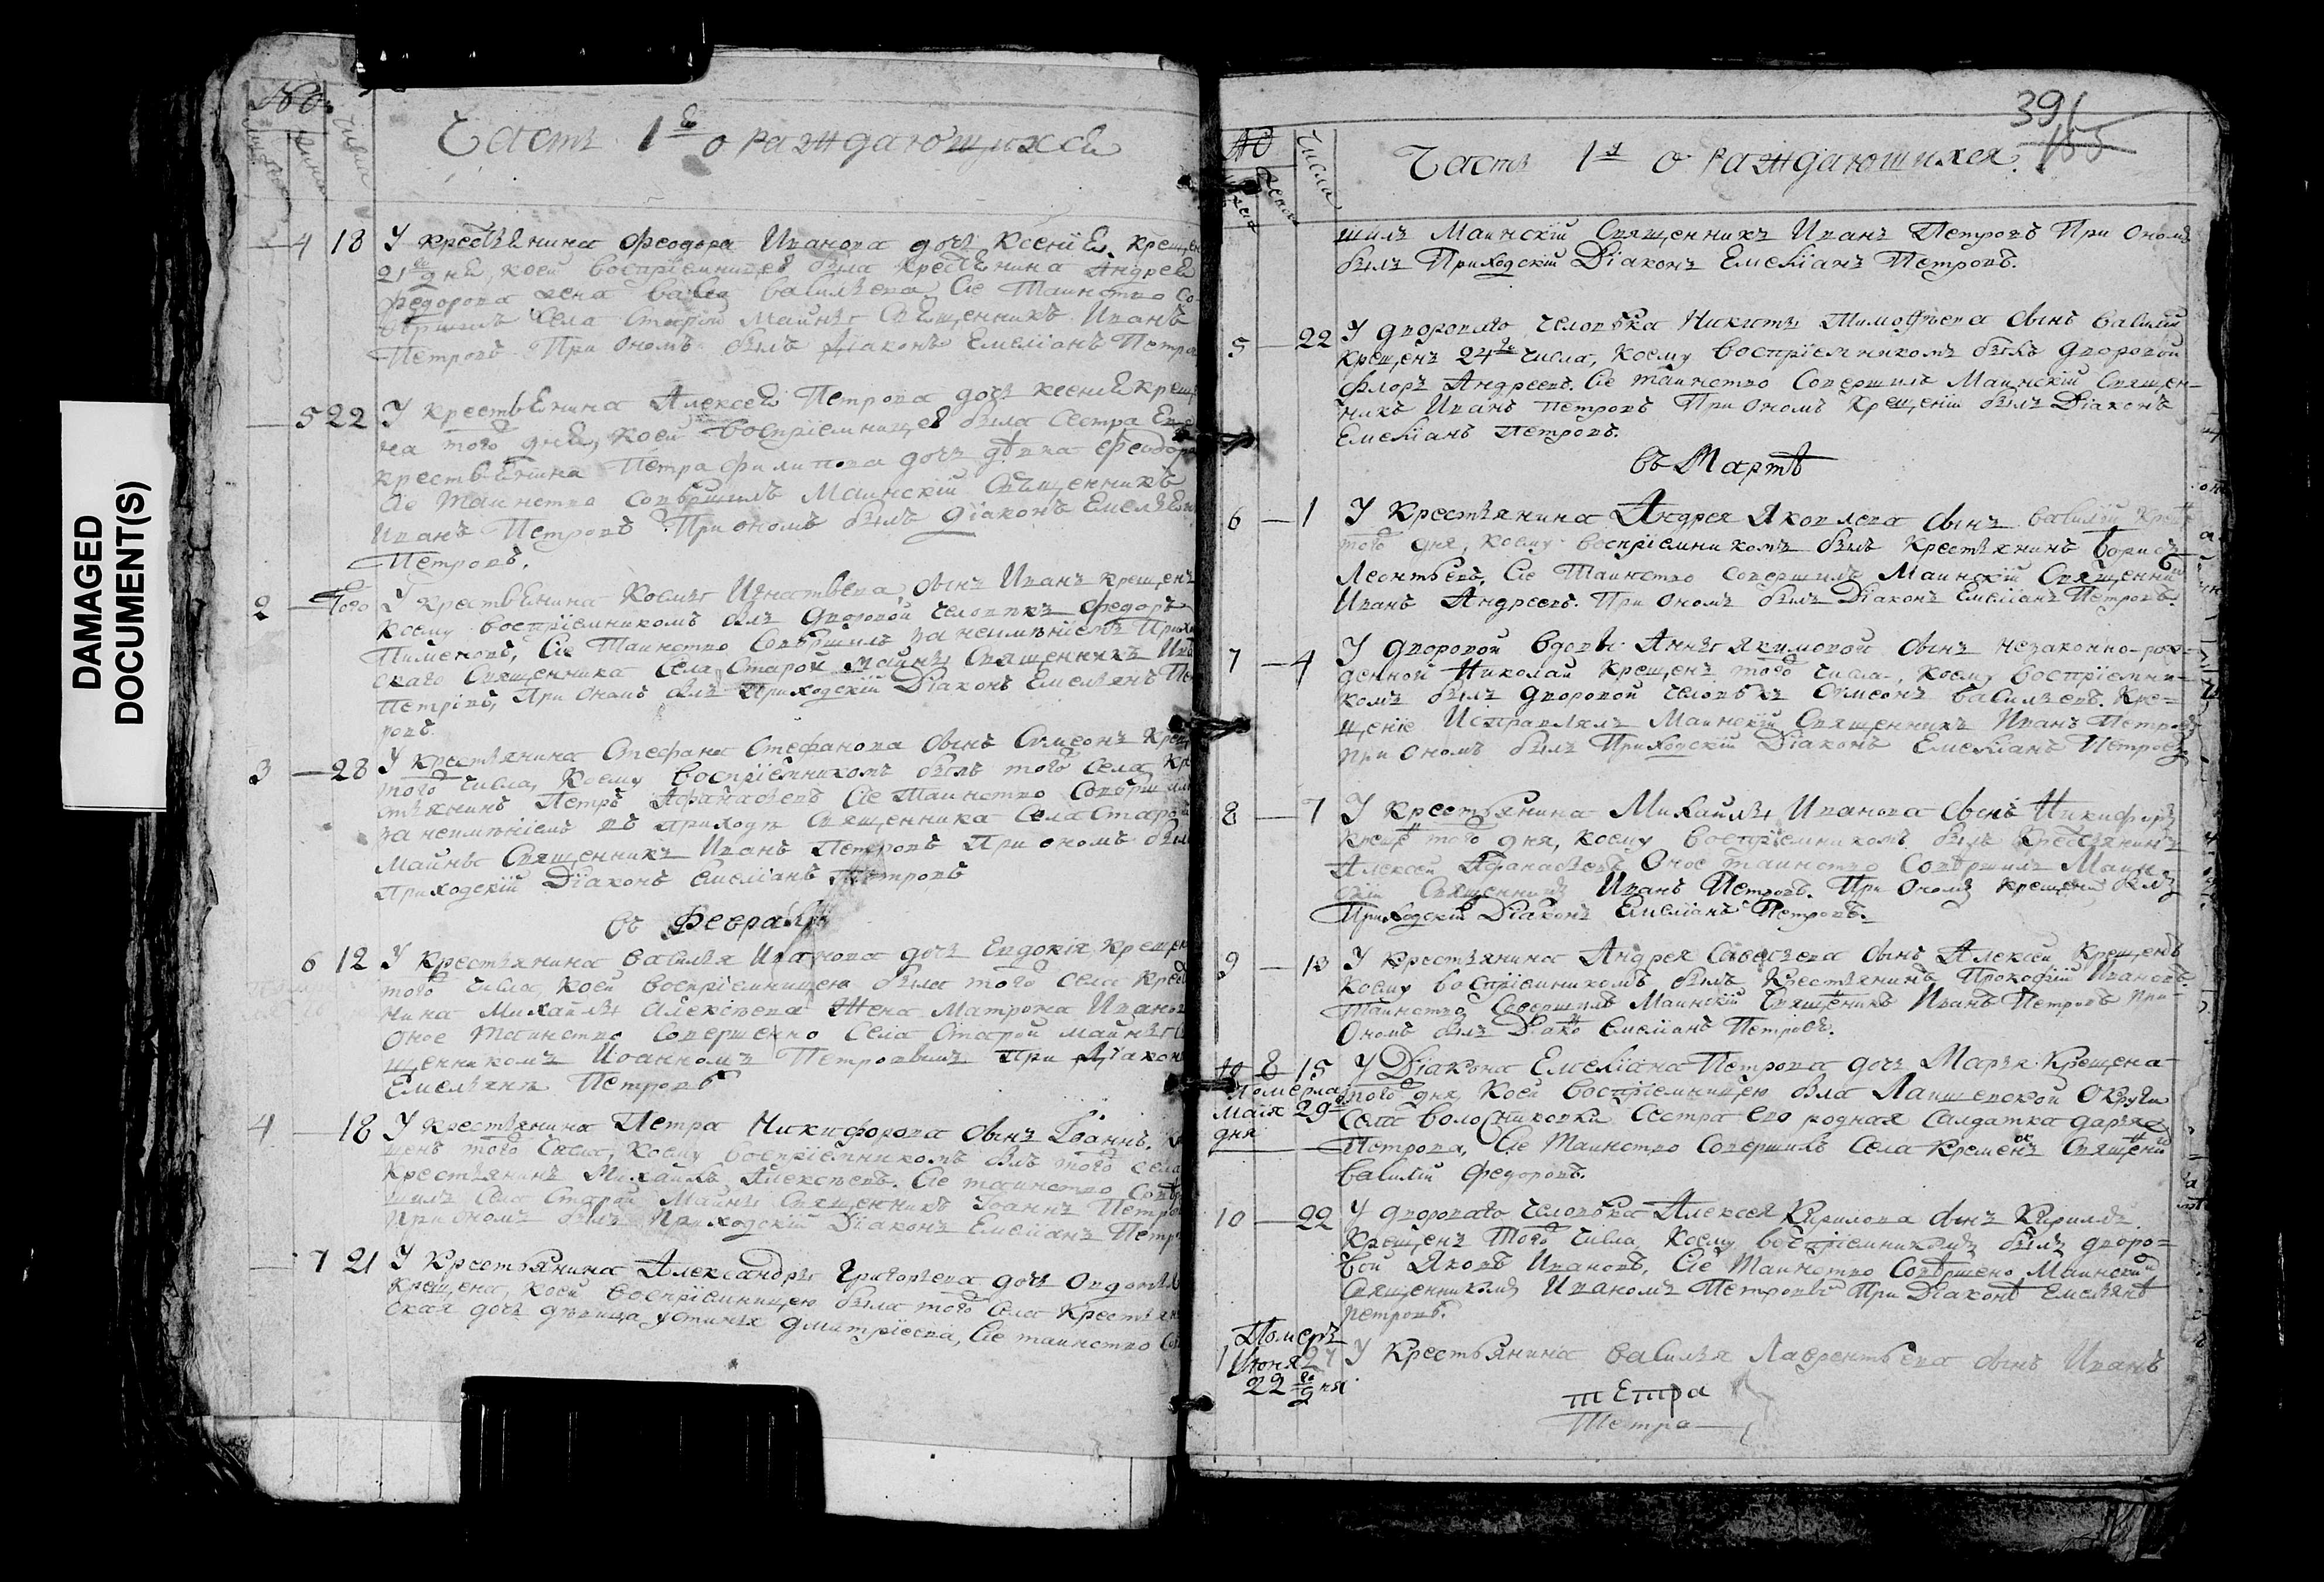 DAMAGED
DOCUMENT(S)
№
Числа
Часть 1я о раждающихся
4 18 У крестьянина Феодора Иванова дочь Ксенiя, крещена
21го дня, коей воспрiемницею была крестьянина Андрея
Федорова жена Васильева, Сiе Таинство Со-
вершилъ Села Старой Майны Священникъ Иванъ
Петровъ При ономъ былъ Дiаконъ Емелiанъ Петро
5 22 У крестьянина Алексея Петрова дочь Ксенiя креще
на того дня, коей воспрiемницею была сестра
крестьянина Петра Филипова дочь дѣвка Феодора
Сiе Таинство совершилъ Маинскiй Священникъ
Иванъ Петровъ При ономъ былъ Дiаконъ Емельянъ
Петровъ.
2 — Того У крестьянина Космы Игнатьева, сынъ Иванъ крещенъ
коему воспрiемникомъ былъ дворовой человѣкъ Федоръ
Пименовъ, Сiе Таинство Совершилъ за неимѣнiемъ Прихо
скаго Священника Села Старой Майны Священникъ Ива
Петровъ, При ономъ былъ Приходскiй Дiаконъ Емельянъ Пе
ровъ.
3 — 28 У крестьянина Стефана Стефанова сынъ Симеонъ Крещ
того числа, коему воспрiемникомъ былъ того села Кре
стьянинъ Петръ Афанасьевъ Сiе Таинство Совершилъ
за неимѣнiемъ въ приходѣ Священника Села Старой
Майны Священникъ Иванъ Петровъ При ономъ былъ
Приходскiй Дiаконъ Емелiанъ Петровъ
въ Февралѣ
6 12 У Крестьянина Василья Иванова дочь Евдокiя Крещен
того числа, коей воспрiемницею была того села Крест
нина Михайлы Алексѣева Жена Матрона Иванов
оное Таинство Совершенно Села Старой Майны С
щенникомъ Иоанномъ Петровымъ При Дiакон
Емельянѣ Петровѣ
4 — 18 У Крестьянина Петра Никифорова сынъ Iоаннъ, к
щенъ того числа, коему воспрiемникомъ былъ того села
Крестьянинъ Михайлъ Алексѣевъ. Сiе таинство Совер
шилъ Села Старой Майны Священникъ Iоаннъ Петро
При ономъ былъ Приходскiй Дiаконъ Емелiанъ Петр
7 21 У Крестьянина Александры Григорьева дочь
крещена, коей воспрiемницею была того села Крестьян
ская дочь дѣвица Устинья Дмитрiева, Сiе таинство Со
391
155
№
Числа
Часть 1я о раждающихся.
шилъ Маинскiй Священникъ Иванъ Петровъ При ономъ
былъ Приходскiй Дiаконъ Емелiанъ Петровъ.
5 — 22 У двороваго человѣка Никиты Тимофѣева сынъ Василiй
крещенъ 24го числа, коему воспрiемникомъ былъ дворовой
Флоръ Андреевъ. Сiе таинство Совершилъ Маинскiй Священ-
никъ Иванъ Петровъ При ономъ крещенiи былъ Дiаконъ
Емелiанъ Петровъ.
въ Мартѣ
6 — 1 У Крестьянина Андрея Яковлева сынъ Василiй Кре
того дня, коему воспрiемникомъ былъ Крестьянинъ Борисъ
Леонтьевъ, Сiе Таинство совершилъ Маинскiй Священни
Иванъ Андреевъ. При ономъ былъ Дiаконъ Емелiанъ Петровъ.
7 — 4 У дворовой вдовы Анны Якимовой сынъ незаконно-рож
денной Николай крещенъ того числа, коему воспрiемни-
комъ былъ дворовой человѣкъ Симеонъ Васильевъ. Кре-
щенiе Исправлялъ Маинскiй Священникъ Иванъ Петровъ
при ономъ былъ Приходскiй Дiаконъ Емелiанъ Петровъ
8 — 7 У Крестьянина Михайлы Иванова сынъ Никифоръ
креще того дня, коему воспрiемникомъ былъ Крестьянинъ
Алексей Афанасьевъ Оное таинство Совершилъ Маин
скiй Священникъ Иванъ Петровъ. При ономъ крещенiи былъ
Приходскiй Дiаконъ Емелiанъ Петровъ.
9 — 13 У крестьянина Андрея Савельева сынъ Алексей Крещенъ
коему воспрiемникомъ былъ Крестьянинъ Прокофiй Ивановъ.
Таинство Совершилъ Маинскiй Священникъ Иванъ Петровъ При
Ономъ былъ Дiако Емелiанъ Петровъ.
10 8 15 У Дiакона Емелiана Петрова дочь Марья Крещена
Померла
Маiя 29го
дня
того дня, коей воспрiемницею была Лаишевской Округи
Села сестра его родная Салдатка Дарья
Петрова, Сiе Таинство Совершилъ Села Кременъ Священи
Василiй Федоровъ.
10 — 22 У двороваго человѣка Алексея Кирилова сынъ Кирилъ
Крещенъ того числа, коему воспрiемникомъ былъ дворо-
вой Яковъ Ивановъ, Сiе Таинство Совершено Маинскимъ
Священникомъ Иваномъ Петровымъ При Дiаконѣ Емельянѣ
Петровѣ.
Померъ
Июня
22го дня
У Крестьянина Василья Лаврентьева сынъ Иванъ
Петра
Петра